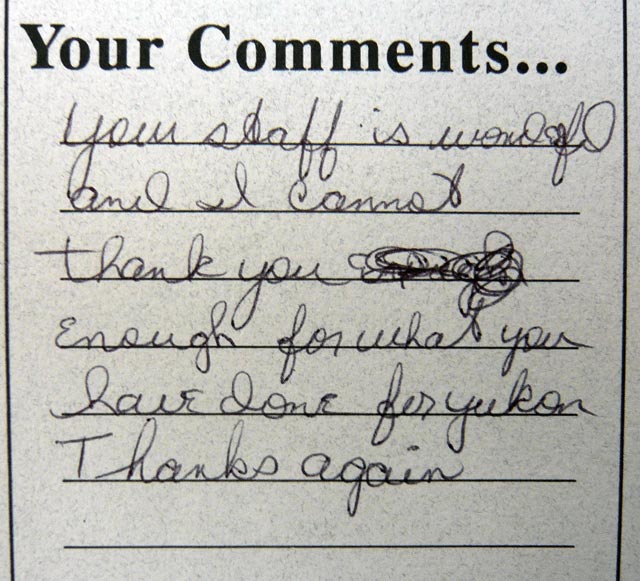 Your Comments...
Your staff is wondefl
and I cannot
thank you
enough for what you
have done for yukon
Thanks again